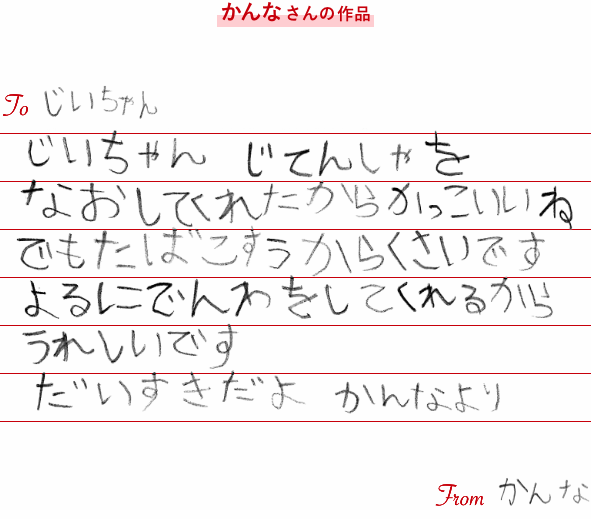 かんなさんの作品
To じいちゃん
じいちゃん じてんしゃを
なおしてくれたからかっこいいね
でもたばこすうからくさいです
よるにでんわをしてくれるから
うれしいです
だいすきだよ かんなより
From かんな